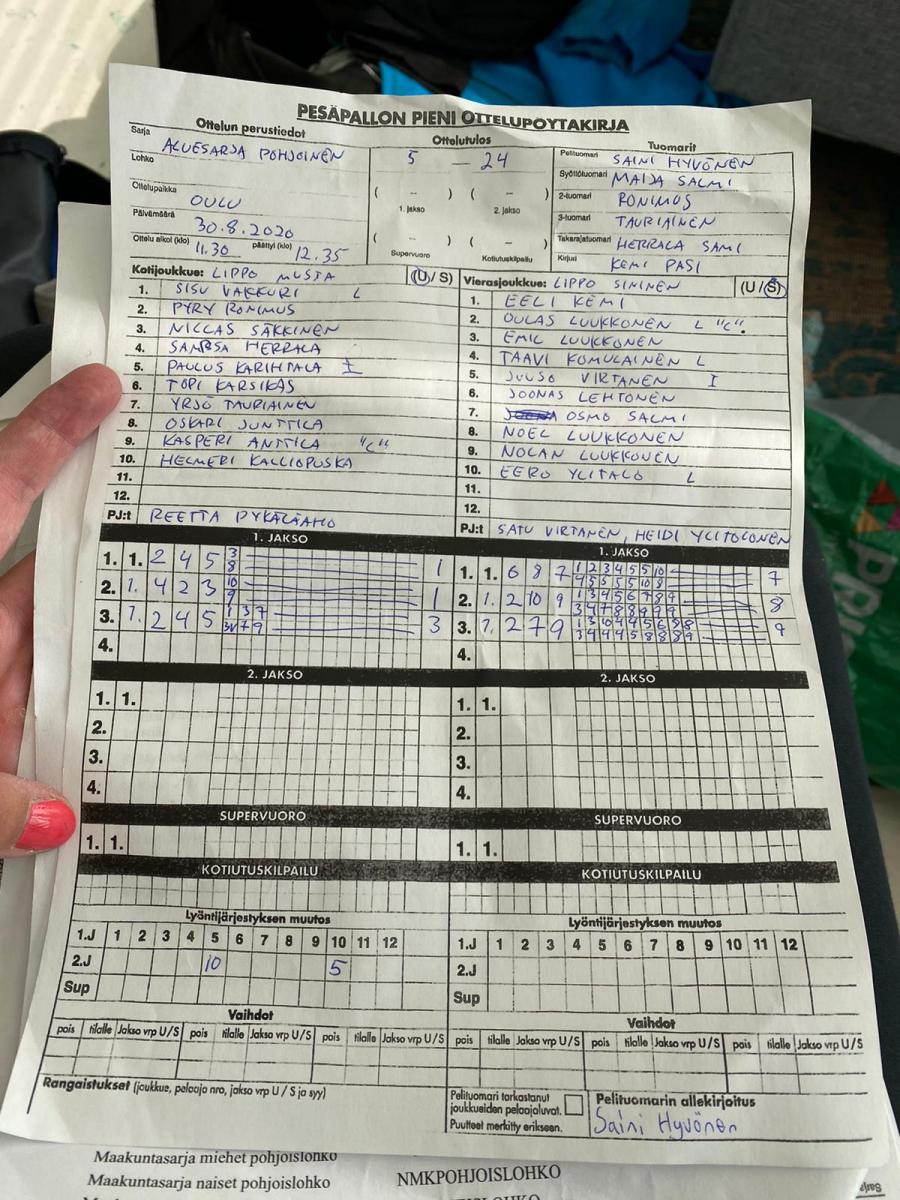 PESÄPALLON PIENI OTTELUPÖYTÄKIRJA
Ottelun perustiedot
Sarja ALUESARJA POHJOINEN
Lohko
Ottelupaikka OULU
Päivämäärä 30.8.2020
Ottelu alkoi (klo) 11.30 päättyi (klo) 12.35
Ottelutulos
5 – 24
( – ) ( – )
1. jakso 2. jakso
( – ) ( – )
Supervuoro Kotiutuskilpailu
Tuomarit
Pelituomari SAINI HYVÖNEN
Syöttötuomari MAIJA SALMI
2-tuomari RONIMUS
3-tuomari TAURIAINEN
Takarajatuomari HERRALA SAMI
Kirjuri KEMI PASI
Kotijoukkue: LIPPO MUSTA (U / S)
1. SISU VAKKURI L
2. PYRY RONIMUS
3. NICLAS SÄKKINEN
4. SAMPSA HERRALA
5. PAULUS KARIHTALA I
6. TOPI KARSIKAS
7. YRJÖ TAURIAINEN
8. OSKARI JUNTTILA
9. KASPERI ANTTILA "C"
10. HELMERI KALLIOPUSKA
11.
12.
PJ:t REETTA PYKÄLÄAHO
Vierasjoukkue: LIPPO SININEN (U / S)
1. EELI KEMI
2. OULAS LUUKKONEN L "C"
3. EMIL LUUKKONEN
4. TAAVI KOMULAINEN L
5. JUUSO VIRTANEN I
6. JOONAS LEHTONEN
7. OSMO SALMI
8. NOEL LUUKKONEN
9. NOLAN LUUKKONEN
10. EERO YLITALO L
11.
12.
PJ:t SATU VIRTANEN, HEIDI YLITOLONEN
1. JAKSO
1. 1. 2 4 5 3 8 1
2. 1. 4 2 3 10 9 1
3. 1. 2 4 5 1 3 7 3
4.
1. JAKSO
1. 1. 6 8 7 1 2 3 4 5 5 10 7
2. 1. 2 10 9 1 3 4 5 6 7 8 9 8
3. 1. 2 7 9 1 3 10 4 4 5 6 8 8 9
4.
2. JAKSO
1. 1.
2.
3.
4.
2. JAKSO
1. 1.
2.
3.
4.
SUPERVUORO
1. 1.
SUPERVUORO
1. 1.
KOTIUTUSKILPAILU
KOTIUTUSKILPAILU
Lyöntijärjestyksen muutos
1.J 1 2 3 4 5 6 7 8 9 10 11 12
2.J 10 5
Sup
Lyöntijärjestyksen muutos
1.J 1 2 3 4 5 6 7 8 9 10 11 12
2.J
Sup
Vaihdot
pois tilalle Jakso vrp U/S pois tilalle Jakso vrp U/S pois tilalle Jakso vrp U/S
Vaihdot
pois tilalle Jakso vrp U/S pois tilalle Jakso vrp U/S pois tilalle Jakso vrp U/S
Rangaistukset (joukkue, pelaaja nro, jakso vrp U / S ja syy)
Pelituomari tarkastanut
joukkueiden pelaajaluvat.
Puutteet merkitty erikseen.
Pelituomarin allekirjoitus
Saini Hyvönen
Maakuntasarja miehet pohjoislohko
Maakuntasarja naiset pohjoislohko NMKPOHJOISLOHKO